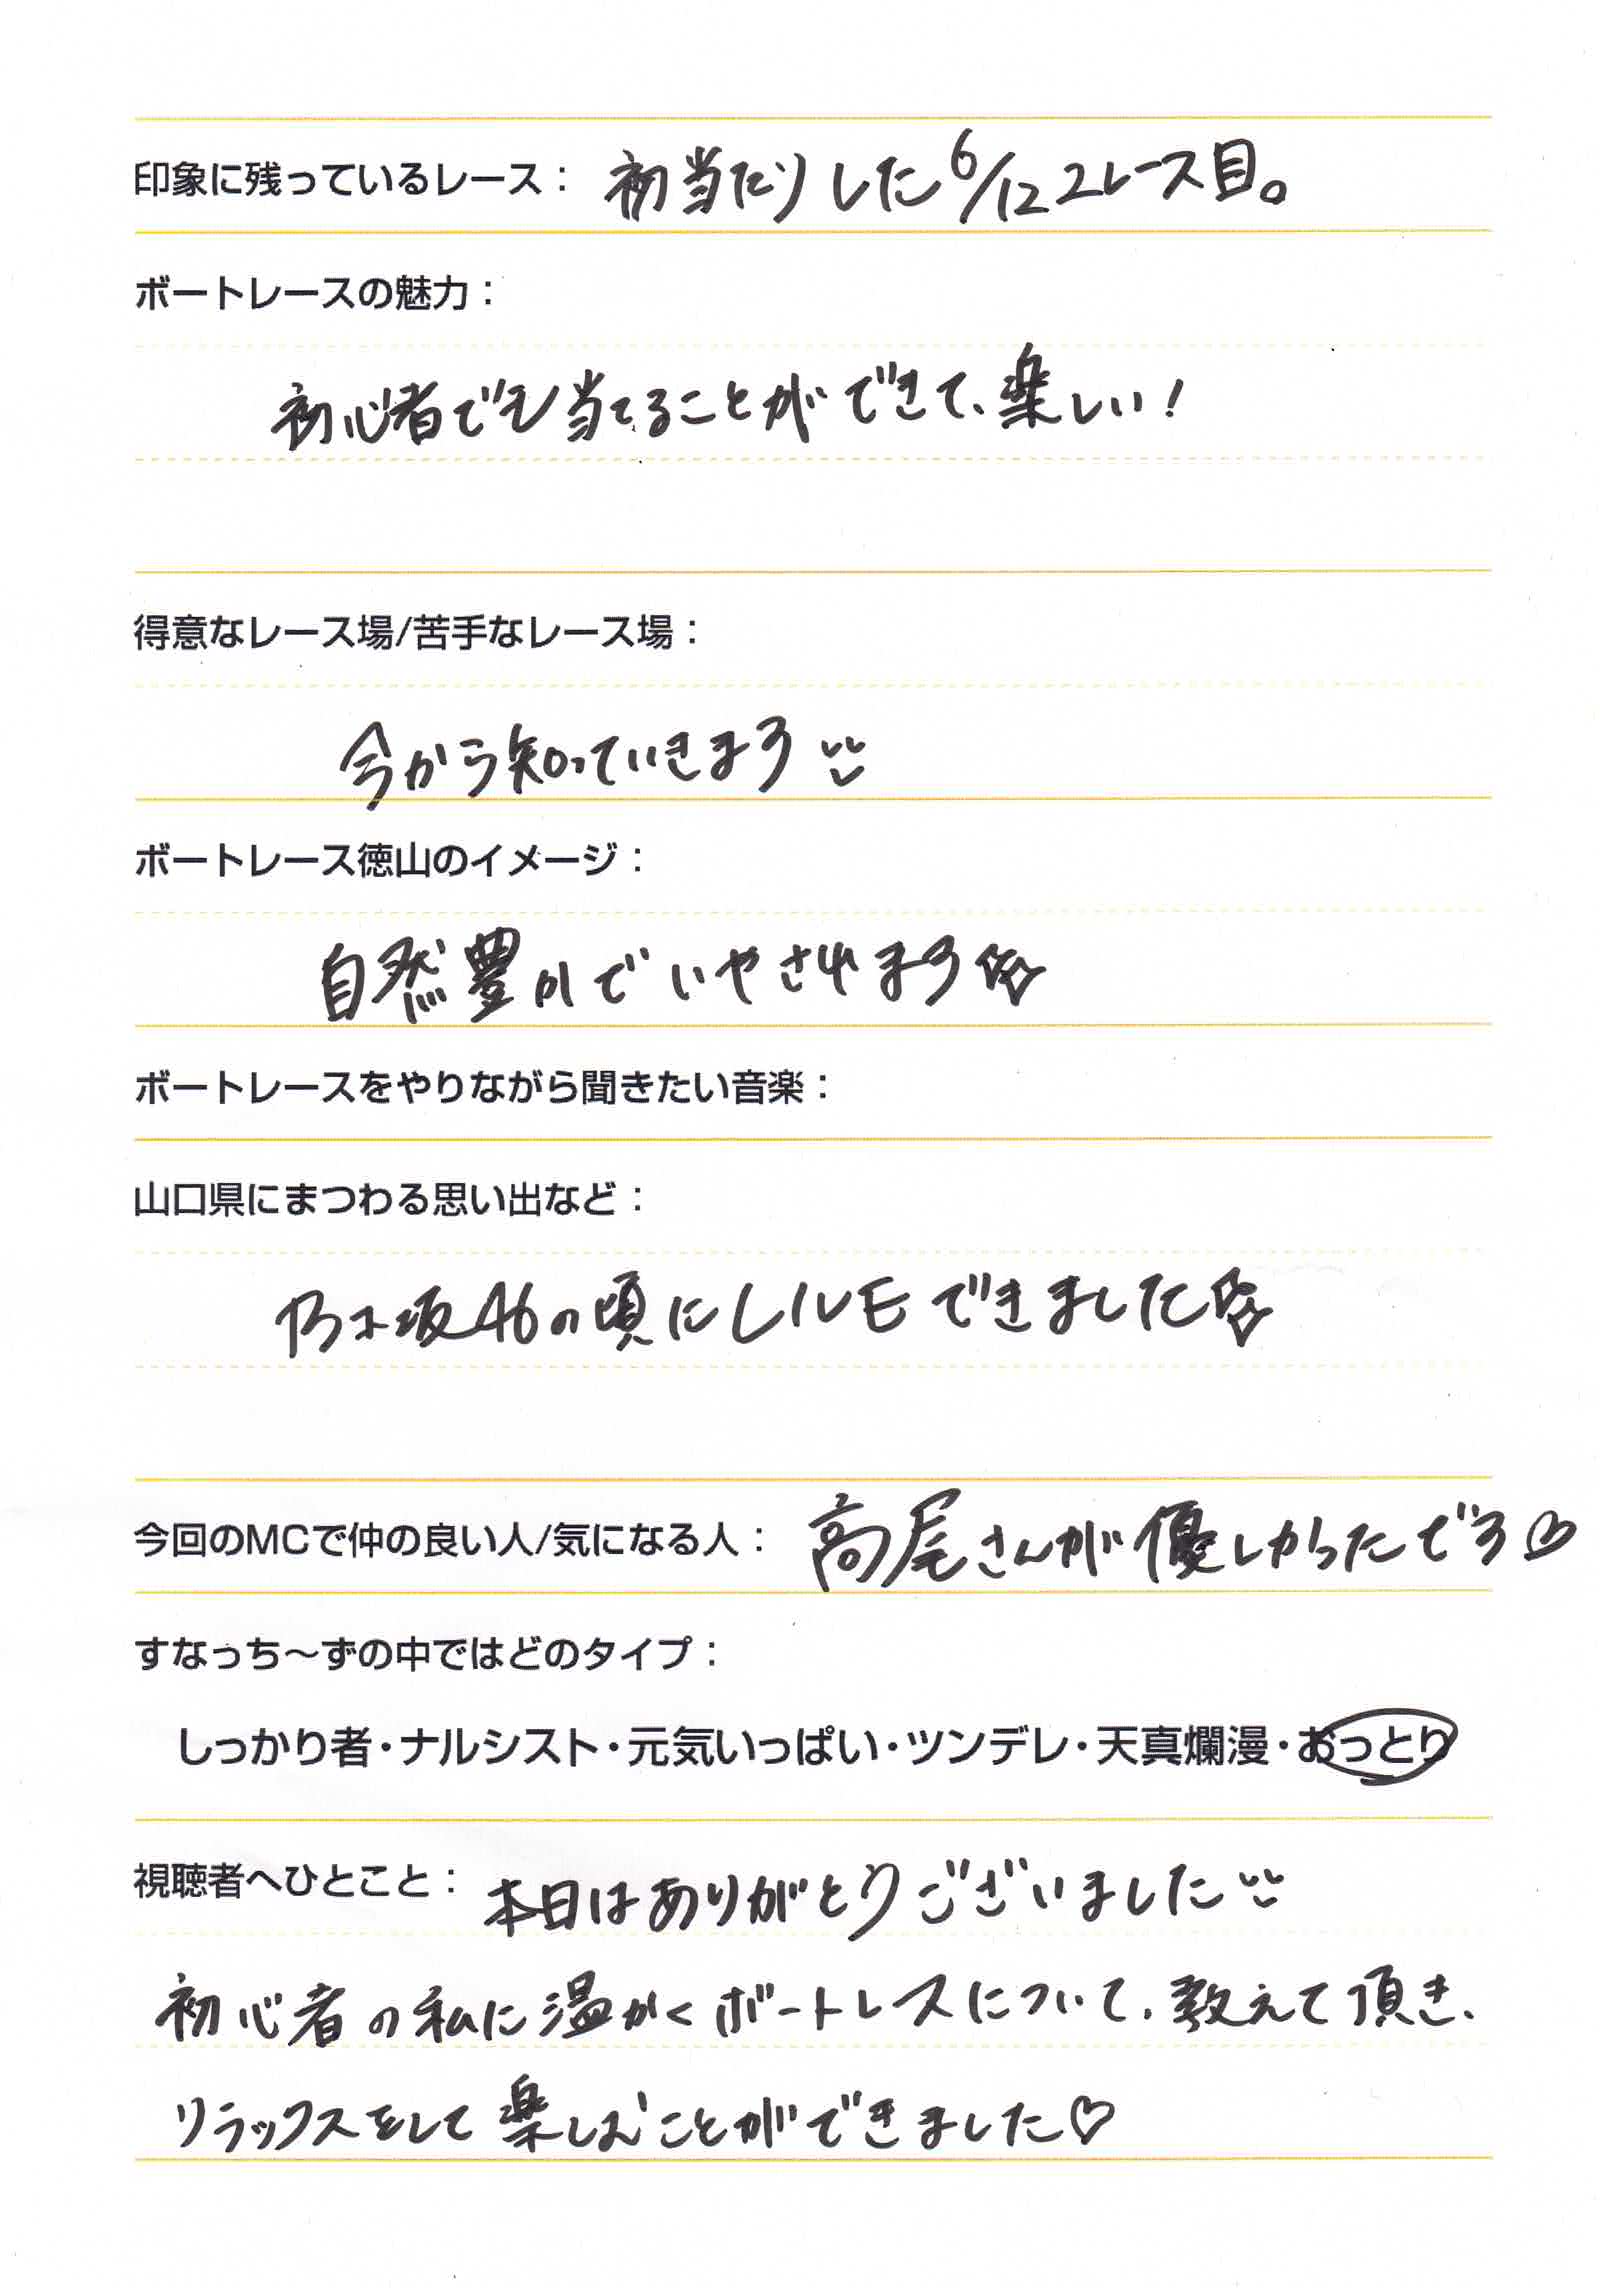 印象に残っているレース： 初当たりした6/12 2レース目。
ボートレースの魅力：
初心者でも当てることができて、楽しい！
得意なレース場/苦手なレース場：
今から知っていきます
ボートレース徳山のイメージ：
自然豊かでいやされます☆
ボートレースをやりながら聞きたい音楽：
山口県にまつわる思い出など：
乃木坂46の頃にレルモできました☆
今回のMCで仲の良い人/気になる人： 高尾さんが優しかったです
すなっち〜ずの中ではどのタイプ：
しっかり者・ナルシスト・元気いっぱい・ツンデレ・天真爛漫・おっとり
視聴者へひとこと： 本日はありがとうございました
初心者の私に温かくボートレスについて、教えて頂き、
リラックスをして楽しむことができました♡